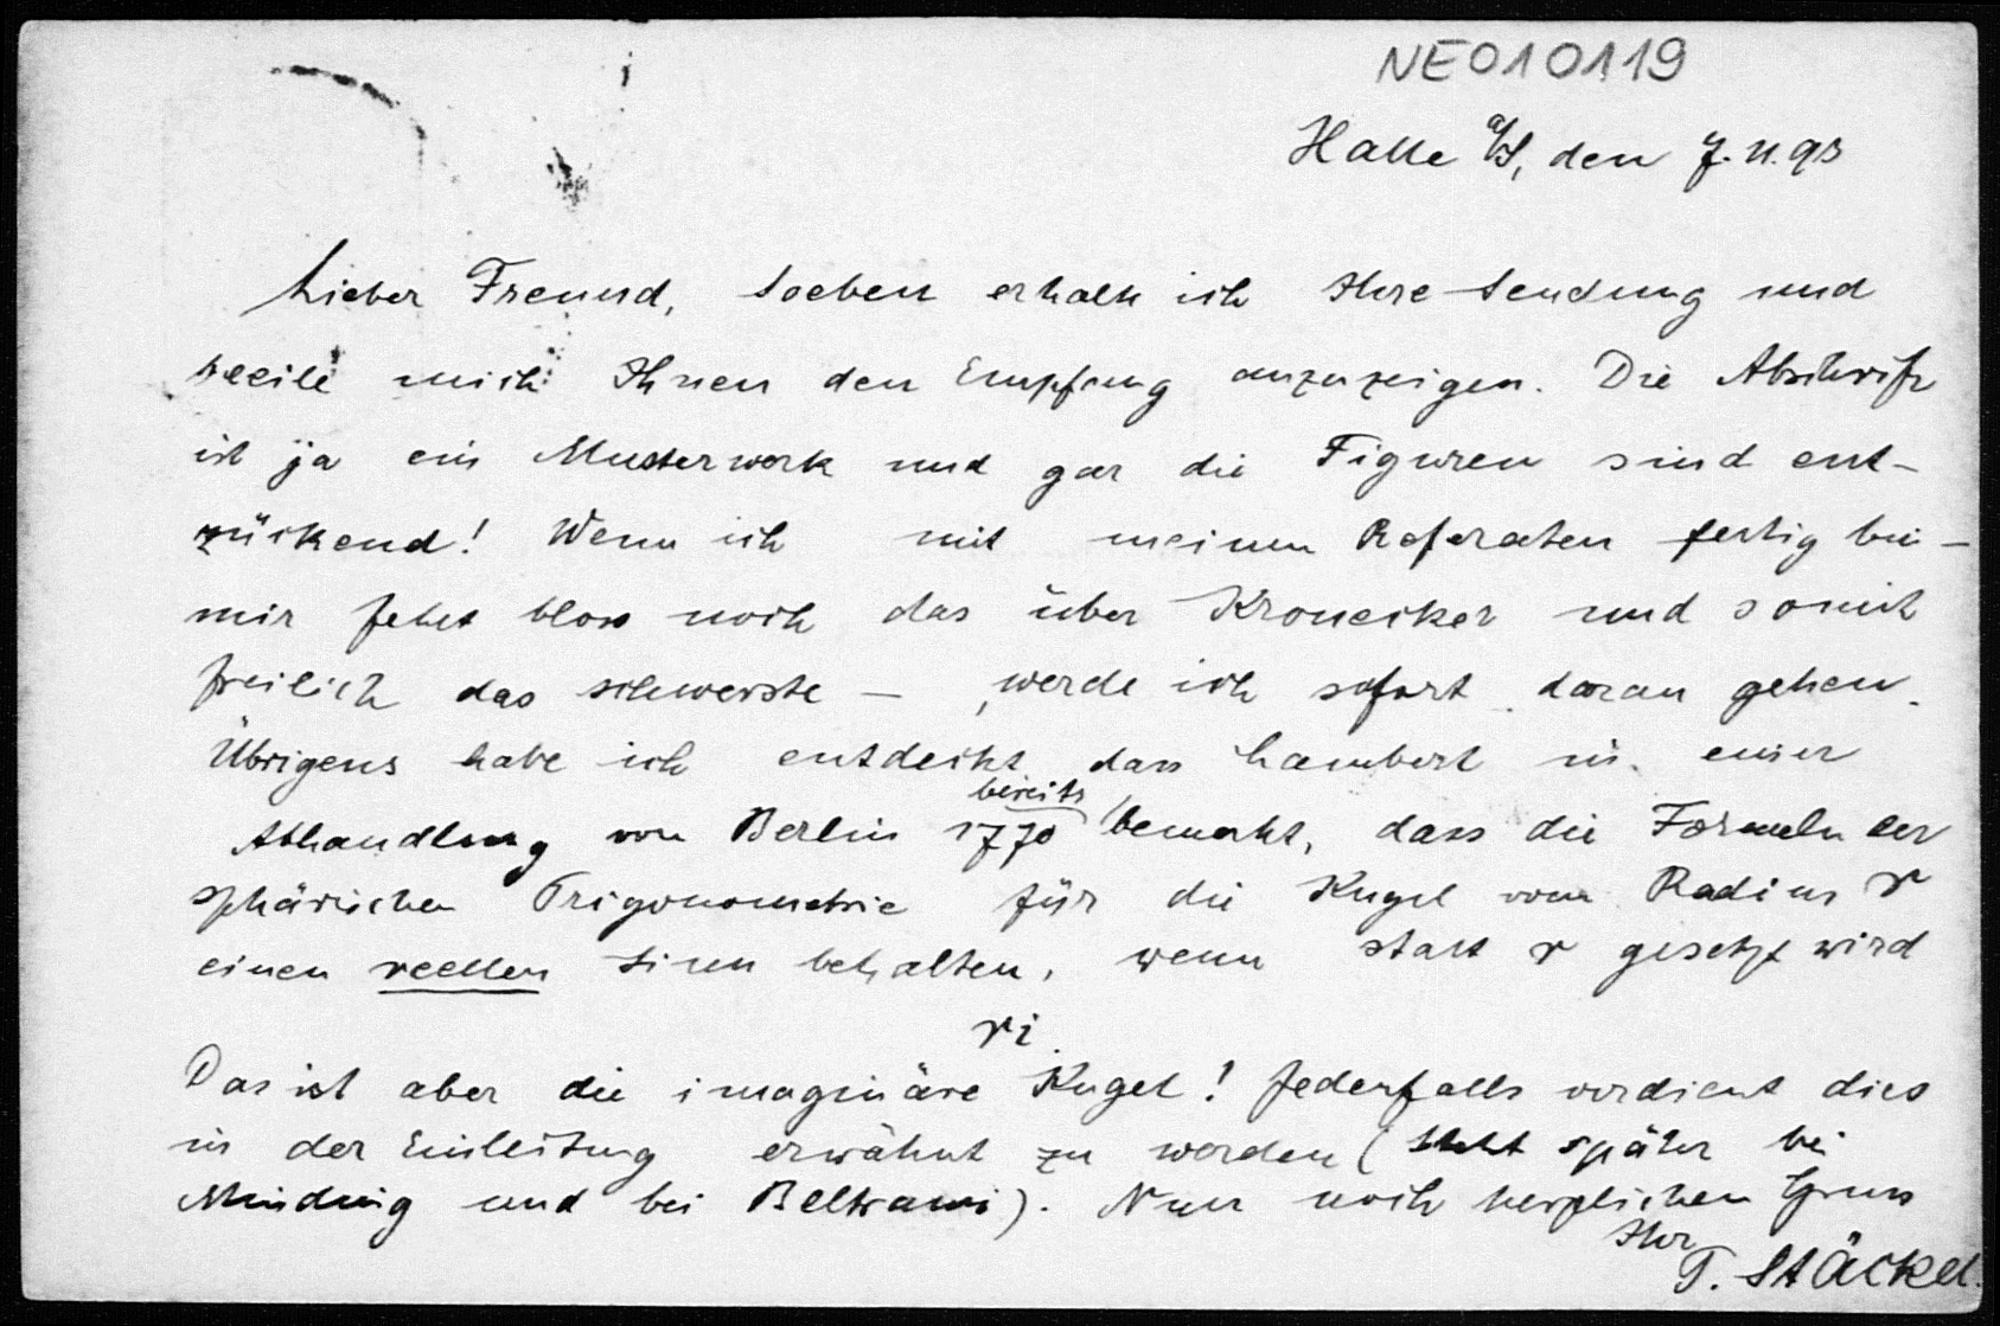 NE010119
Halle a/S, den 7. 11. 93
Lieber Freund, soeben erhalte ich Ihre Sendung und
beeile mich Ihnen den Empfang anzuzeigen. Die Abschrift
ist ja ein Musterwerk und gar die Figuren sind ent-
zückend! Wenn ich mit meinen Referaten fertig bin –
mir fehlt bloss noch das über Kronecker und somit
freilich das schwerste – , werde ich sofort daran gehen.
Übrigens habe ich entdeckt, dass Lambert in einer
bereits
Abhandlung von Berlin 1770 bemerkt, dass die Formeln der
sphärischen Trigonometrie für die Kugel vom Radius r
einen reellen Sinn behalten, wenn statt r gesetzt wird
ri.
Das ist aber die imaginäre Kugel! Jedenfalls verdient dies
in der Einleitung erwähnt zu werden ( steht später bei
Minding und bei Beltrami). Nun noch herzlichen Gruss
Ihr
P. Stäckel.